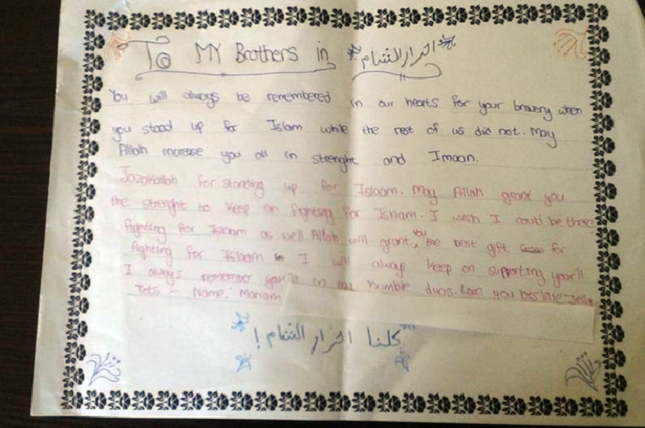 To MY Brothers in احرار الشام
You will always be remembered in our hearts for your bravery when
you stood up for Islam while the rest of us did not. May
Allah increase you all in strenght and Imaan.
Jazakallah for standing up for Islaam. May Allah grant you
the strenght to keep on fighting for Islaam. I wish I could be there
fighting for Islaam as well. Allah will grant you the best gift for
fighting for Islaam I will always keep on supporting your'll
I always remember in my humble duas. Love you
Name: Mariam
كلنا احرار الشام!